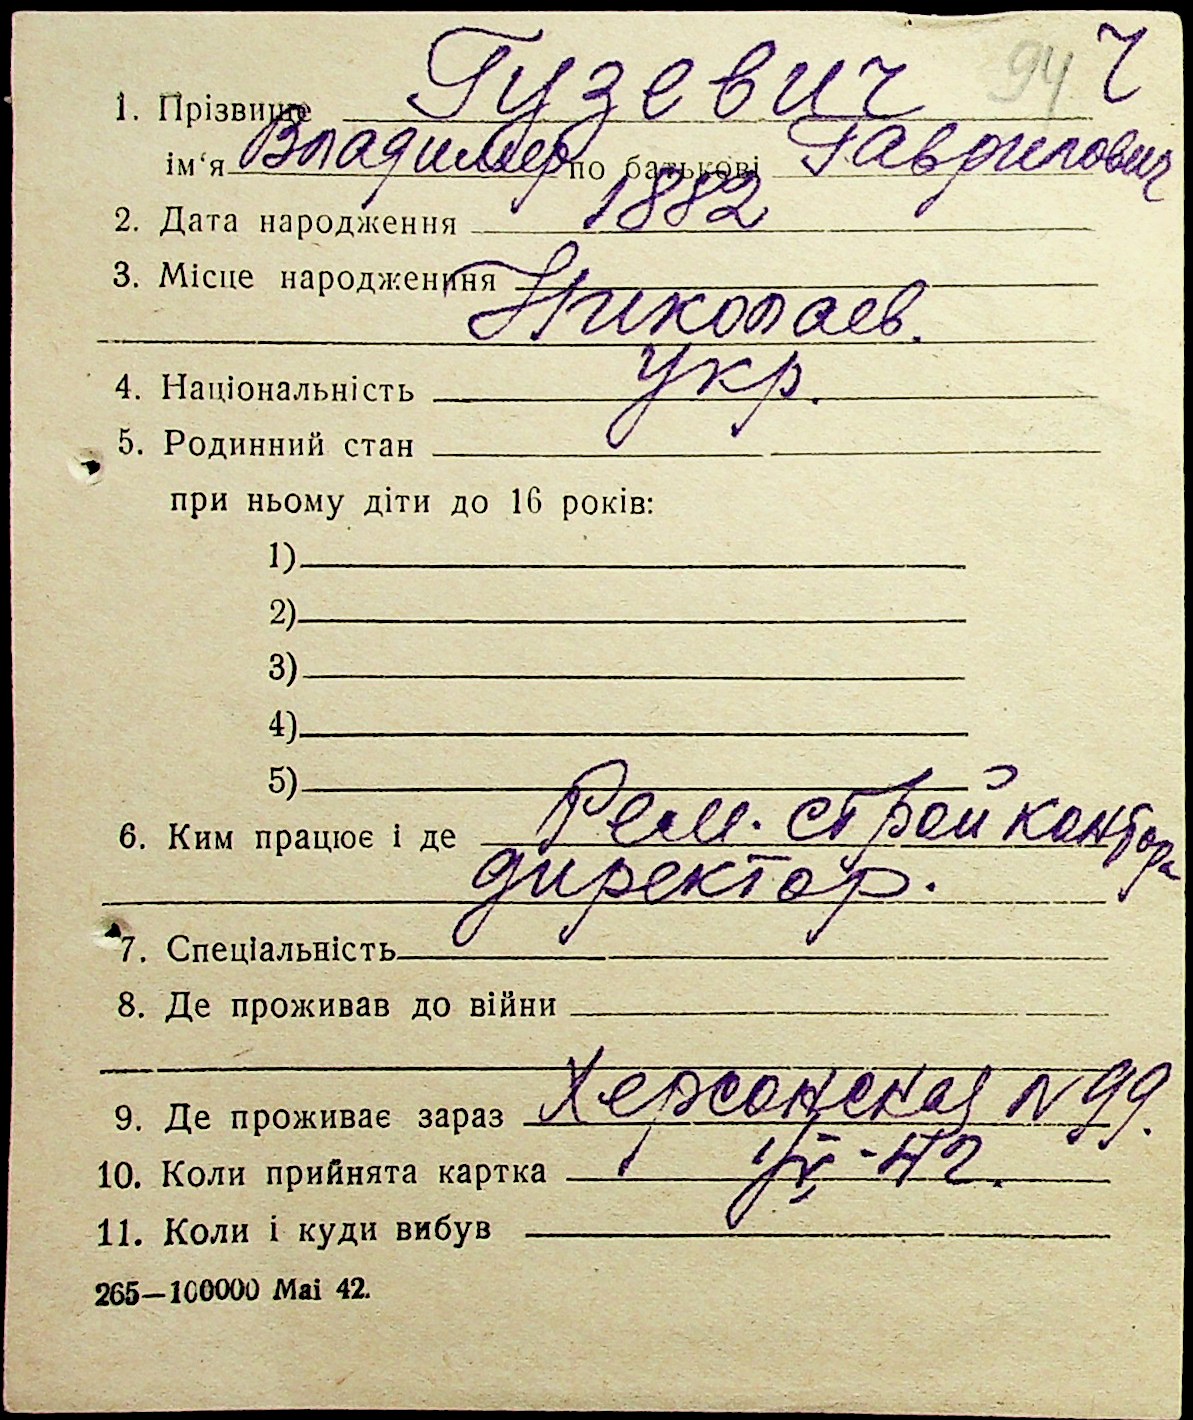 94 Ч
1. Прізвище Гузевич
ім‘я Владимир по батькові Гаврилович
2. Дата народження 1882
3. Місце народженння Николаев.
4. Національність Укр.
5. Родинний стан
при ньому діти до 16 років:
1)
2)
3)
4)
5)
6. Ким працює і де Рем. строй контора
директор.
7. Спеціальність
8. Де проживав до війни
9. Де проживає зараз Херсонская N 99.
10. Коли прийнята картка -42.
11. Коли і куди вибув
265—100000 Mai 42.